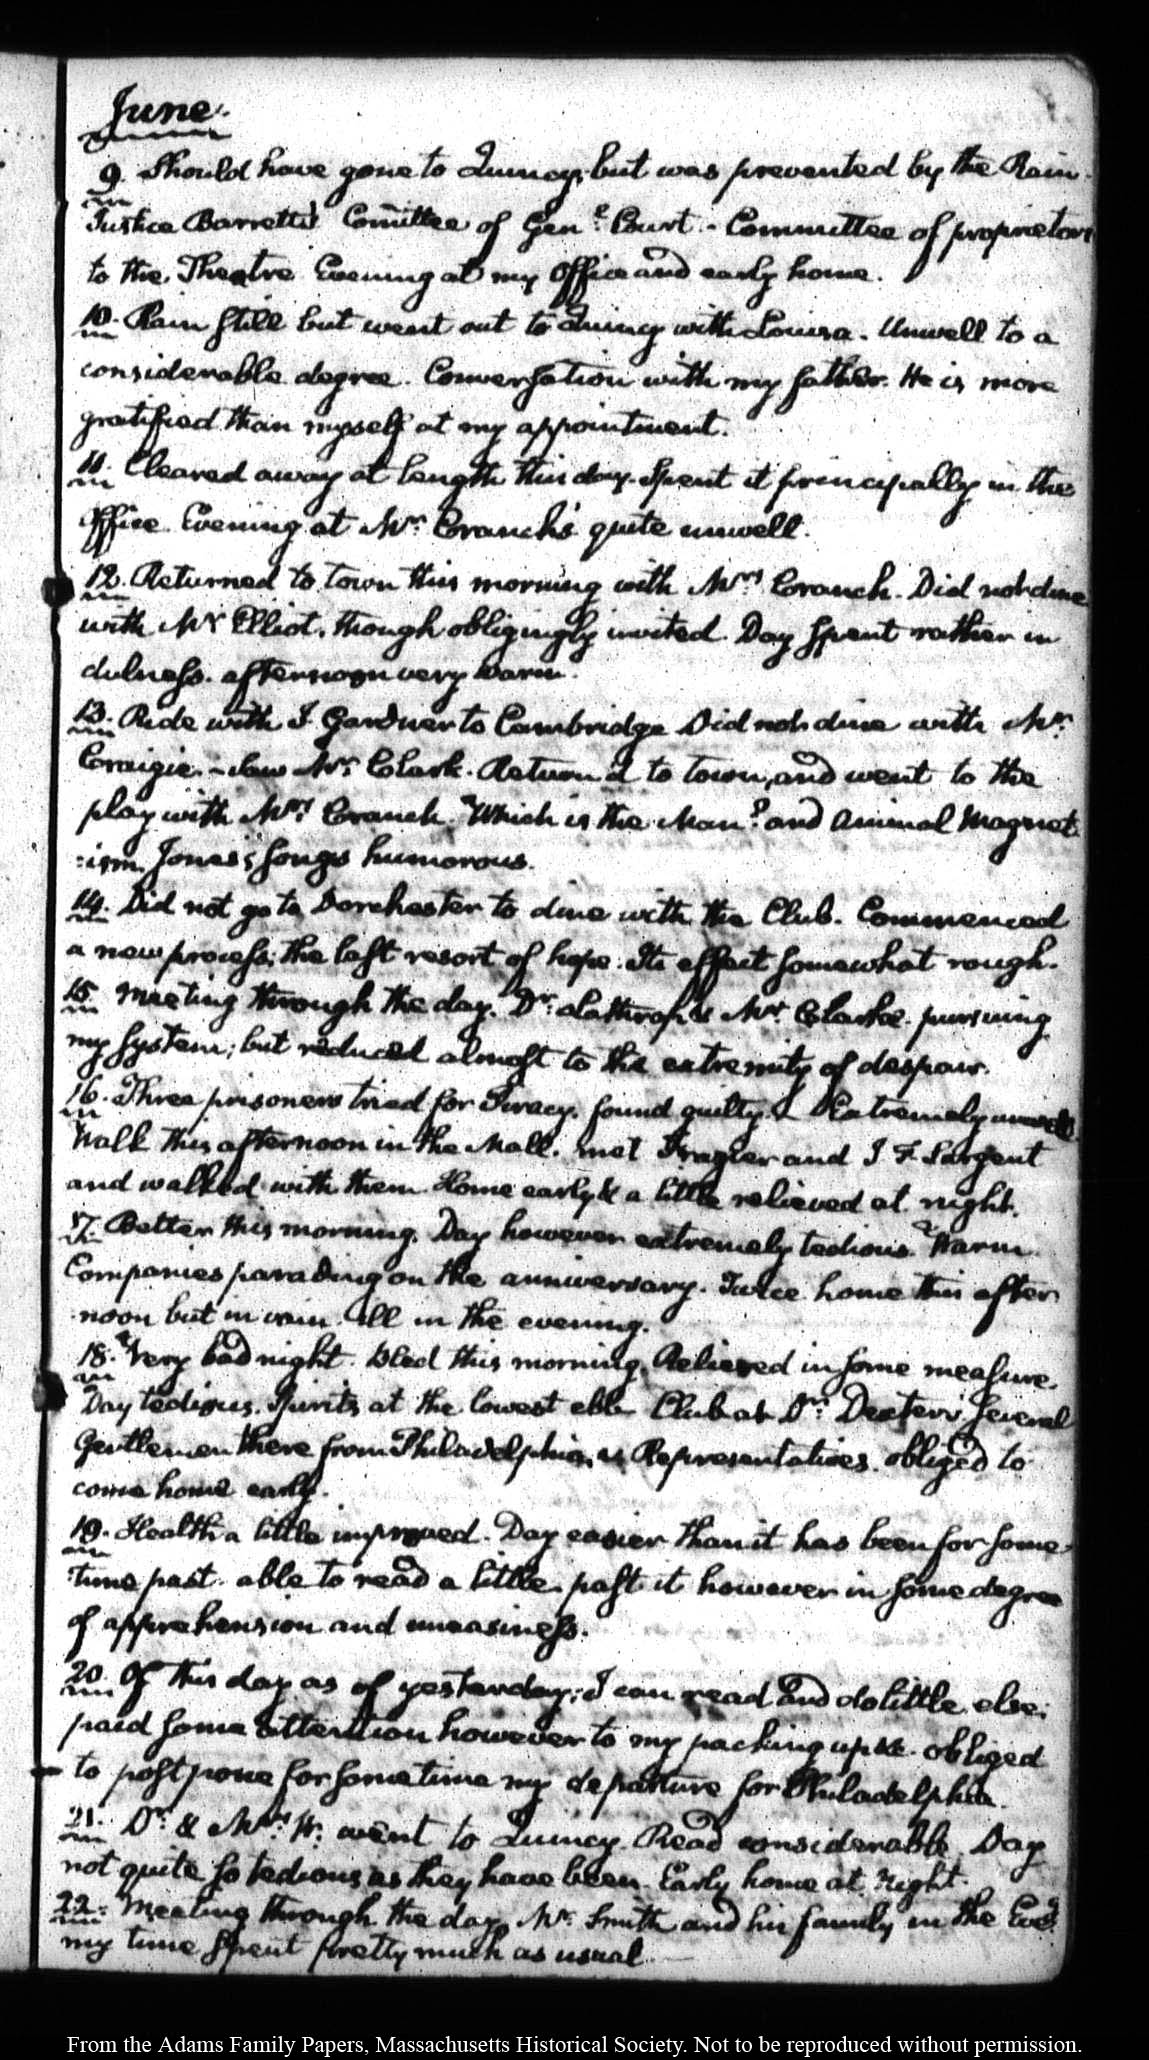 June.
9. Should have gone to Quincy, but was prevented by the Rain.
Justice Barrett's Comittee of Genl. Court - Committee of proprietors
to the Theatre Evening at my Office and early home.
10. Rain still but went out to Quincy with Louisa. Unwell to a
considerable degree. Conversation with my father. He is more
gratified than myself at my appointment.
11. Cleared away at length this day. Spent it principally in the
Office. Evening at Mr. Cranch's quite unwell.
12. Returned to town this morning with Mrs. Cranch. Did not dine
with Mr Elliot, though obligingly invited. Day spent rather in
dulness. afternoon very warm.
13. Ride with J. Gardner to Cambridge Did not dine with Mr.
Craigie. - Saw Mr. Clark. Return'd to town, and went to the
play with Mrs. Cranch. "Which is the Man"? and Animal Magnet:
:ism, Jones's songs humorous.
14. Did not go to Dorchester to dine with the Club. Commenced
a new process; the last resort of hope. Its effect somewhat rough.
15. Meeting through the day. Dr. Lathrop & Mr. Clarke. pursuing
my system; but reduced almost to the extremity of despair.
16. Three prisoners tried for Piracy, found guilty. Extremely unwell
Walk this afternoon in the Mall. met Frazier and J F Sargent
and walked with them. Home early & a little relieved at night.
17. Better this morning. Day however extremely tedious. Warm
Companies parading on the anniversary. Twice home this after
noon but in vain. Ill in the evening.
18. Very bad night. Bled this morning. Relieved in some measure.
Day tedious. Spirits at the lowest ebb Club at Dr: Dexter's several
Gentlemen there from Philadelphia, as Representatives. obliged to
come home early.
19. Health a little improved. Day easier than it has been for some-
time past. able to read a little. past it however in some degree
of apprehension and uneasiness.
20. Of this day as of yesterday; I can read and do little else;
paid some attention however to my packing up &c. obliged
to postpone for sometime my departure for Philadelphia.
21. Dr. & Mrs. W. went to Quincy. Read considerable. Day
not quite so tedious as they have been. Early home at Night.
22. Meeting through the day, Mr. Smith and his family in the Eveg.
my time spent pretty much as usual.
From the Adams Family Papers, Massachusetts Historical Society. Not to be reproduced without permission.